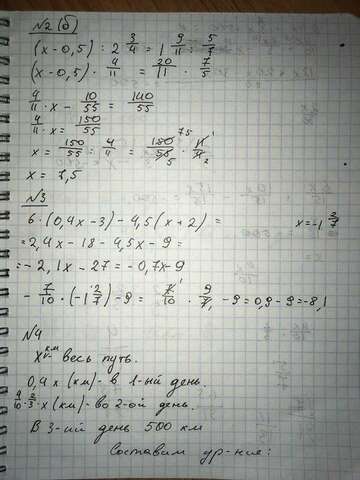 №2 (б)
(x-0,5) : 2 3/4 = 1 9/11 : 5/7
(x-0,5) · 4/11 = 20/11 · 7/5
4/11 · x - 10/55 = 140/55
4/11 · x = 150/55
x = 150/55 : 4/11 = 150/55 · 11/4
x = 7,5
№3
6 · (0,4x-3) - 4,5(x+2) = x = -1 2/7
= 2,4x - 18 - 4,5x - 9 =
= -2,1x - 27 = -0,7x-9
- 7/10 · (-1 2/7) - 9 = 7/10 · 9/7 - 9 = 0,9 - 9 = -8,1
№4
x км - весь путь.
0,4x (км) - в 1-ый день.
4/10 · 2/3 · x (км) - во 2-ой день.
В 3-ий день 500 км
Составим ур-ние: